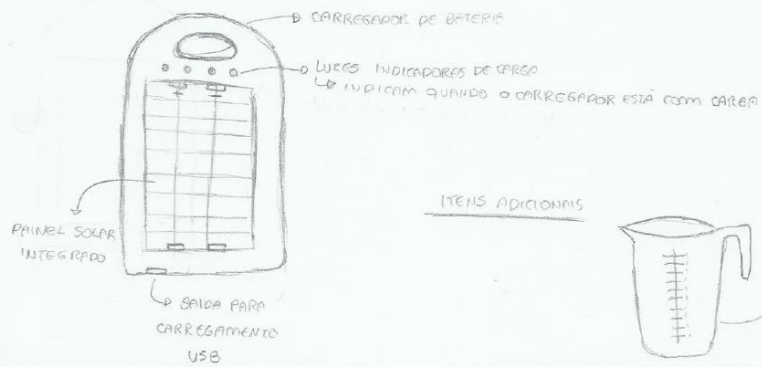 CARREGADOR DE BATERIA
LUZES INDICADORAS DE CARGA
INDICAM QUANDO O CARREGADOR ESTÁ COM CARGA
+ −
PAINEL SOLAR
INTEGRADO
SAIDA PARA
CARREGAMENTO
USB
ITENS ADICIONAIS